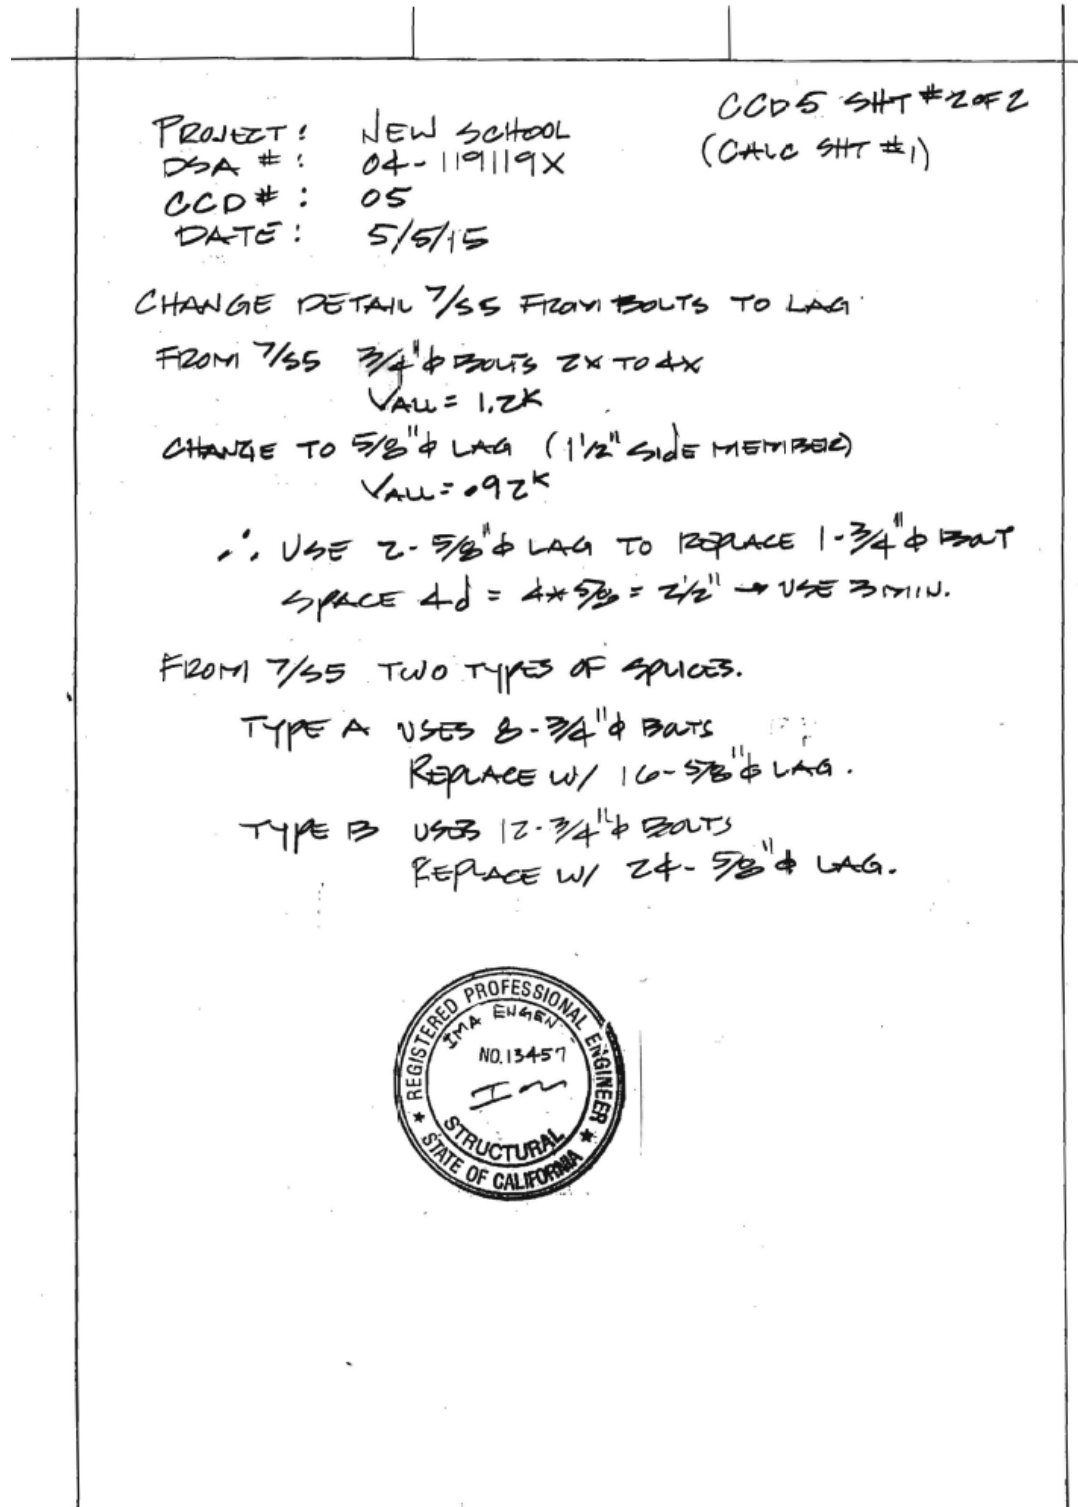 CCD5 SHT #2 OF 2
(CALC SHT #1)
PROJECT: NEW SCHOOL
DSA #: 04-119119X
CCD #: 05
DATE: 5/5/15
CHANGE DETAIL 7/S5 FROM BOLTS TO LAG
FROM 7/S5 3/4"ϕ BOLTS 2X TO 4X
VALL = 1.2K
CHANGE TO 5/8"ϕ LAG (1 1/2" SIDE MEMBER)
VALL = .92K
∴ USE 2 - 5/8"ϕ LAG TO REPLACE 1 - 3/4"ϕ BOLT
SPACE 4d = 4*5/8 = 2 1/2" → USE 3 MIN.
FROM 7/S5 TWO TYPES OF SPLICES.
TYPE A USES 8 - 3/4"ϕ BOLTS
REPLACE W/ 16 - 5/8"ϕ LAG.
TYPE B USES 12 - 3/4"ϕ BOLTS
REPLACE W/ 24 - 5/8"ϕ LAG.
REGISTERED PROFESSIONAL ENGINEER
IMA ENGEN
NO. 13457
STRUCTURAL
STATE OF CALIFORNIA